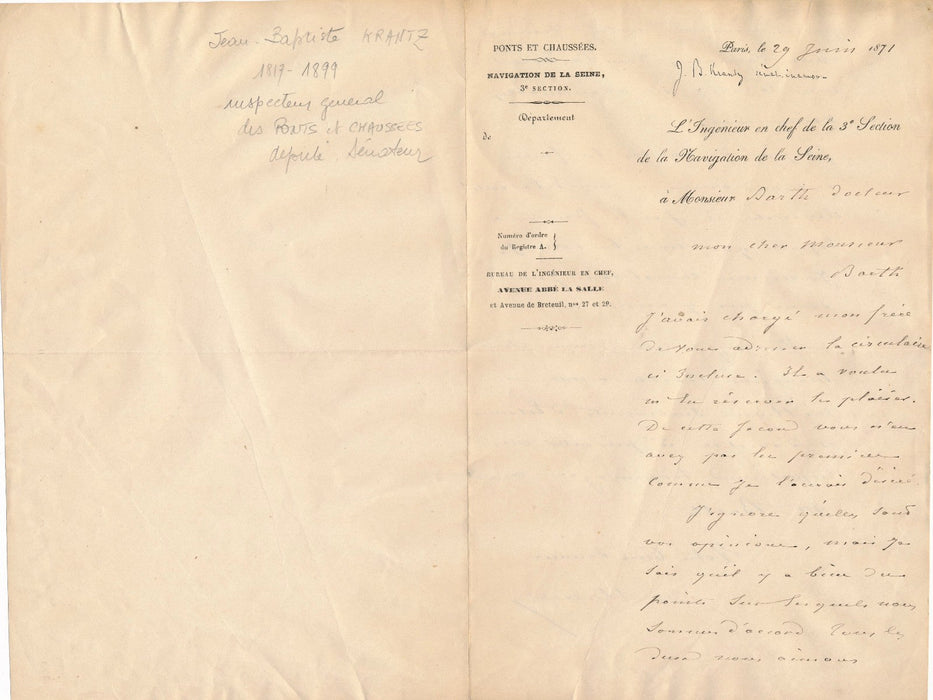 Jean-Baptiste KRANTZ
1817-1899
inspecteur general
des PONTS et CHAUSSEES
deputé, Sénateur
PONTS ET CHAUSSÉES.
NAVIGATION DE LA SEINE,
3e SECTION.
Département
de
Numéro d'ordre
du Registre A.
BUREAU DE L'INGÉNIEUR EN CHEF,
AVENUE ABBÉ LA SALLE
et Avenue de Breteuil, nos 27 et 29.
Paris, le 29 Juin 1871
J. B. Krantz
L'Ingénieur en chef de la 3e Section
de la Navigation de la Seine,
à Monsieur Barth docteur
mon cher Monsieur
Barth
J'avais chargé mon frère
de vous adresser la circulaire
ci incluse. Il a voulu
m'en réserver le plaisir.
De cette facon vous n'en
avez pas les premices
comme je l'aurais désiré.
J'ignore quelles sont
vos opinions, mais je
sais qu'il y a bien des
points sur lesquels nous
sommes d'accord. Tous les
deux nous aimons